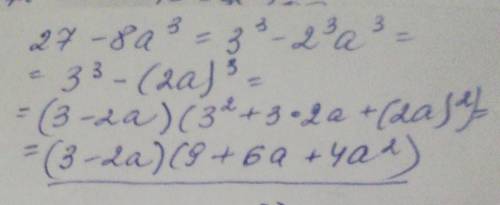 27 - 8a³ = 3³ - 2³a³ =
= 3³ - (2a)³ =
= (3 - 2a)(3² + 3 · 2a + (2a)²) =
= (3 - 2a)(9 + 6a + 4a²)